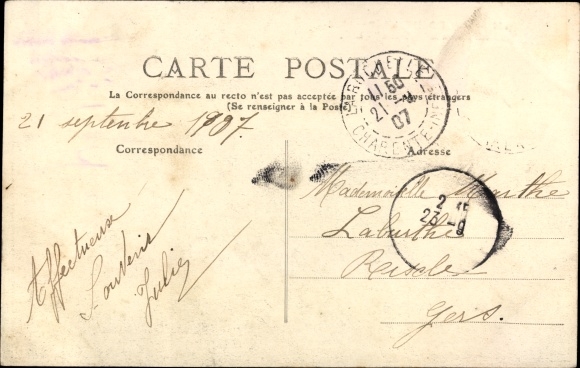 CARTE POSTALE
La Correspondance au recto n'est pas acceptée par tous les pays étrangers
(Se renseigner à la Poste)
21 septembre 1907.
Correspondance
Adresse
LA ROCHELLE
11 50
21 - 9
07
CHARENTE-INFRE
Affectueux
Souvenir
Julie
Mademoiselle Marthe
Laburthe
Riscle
Gers.
2
23 - 9